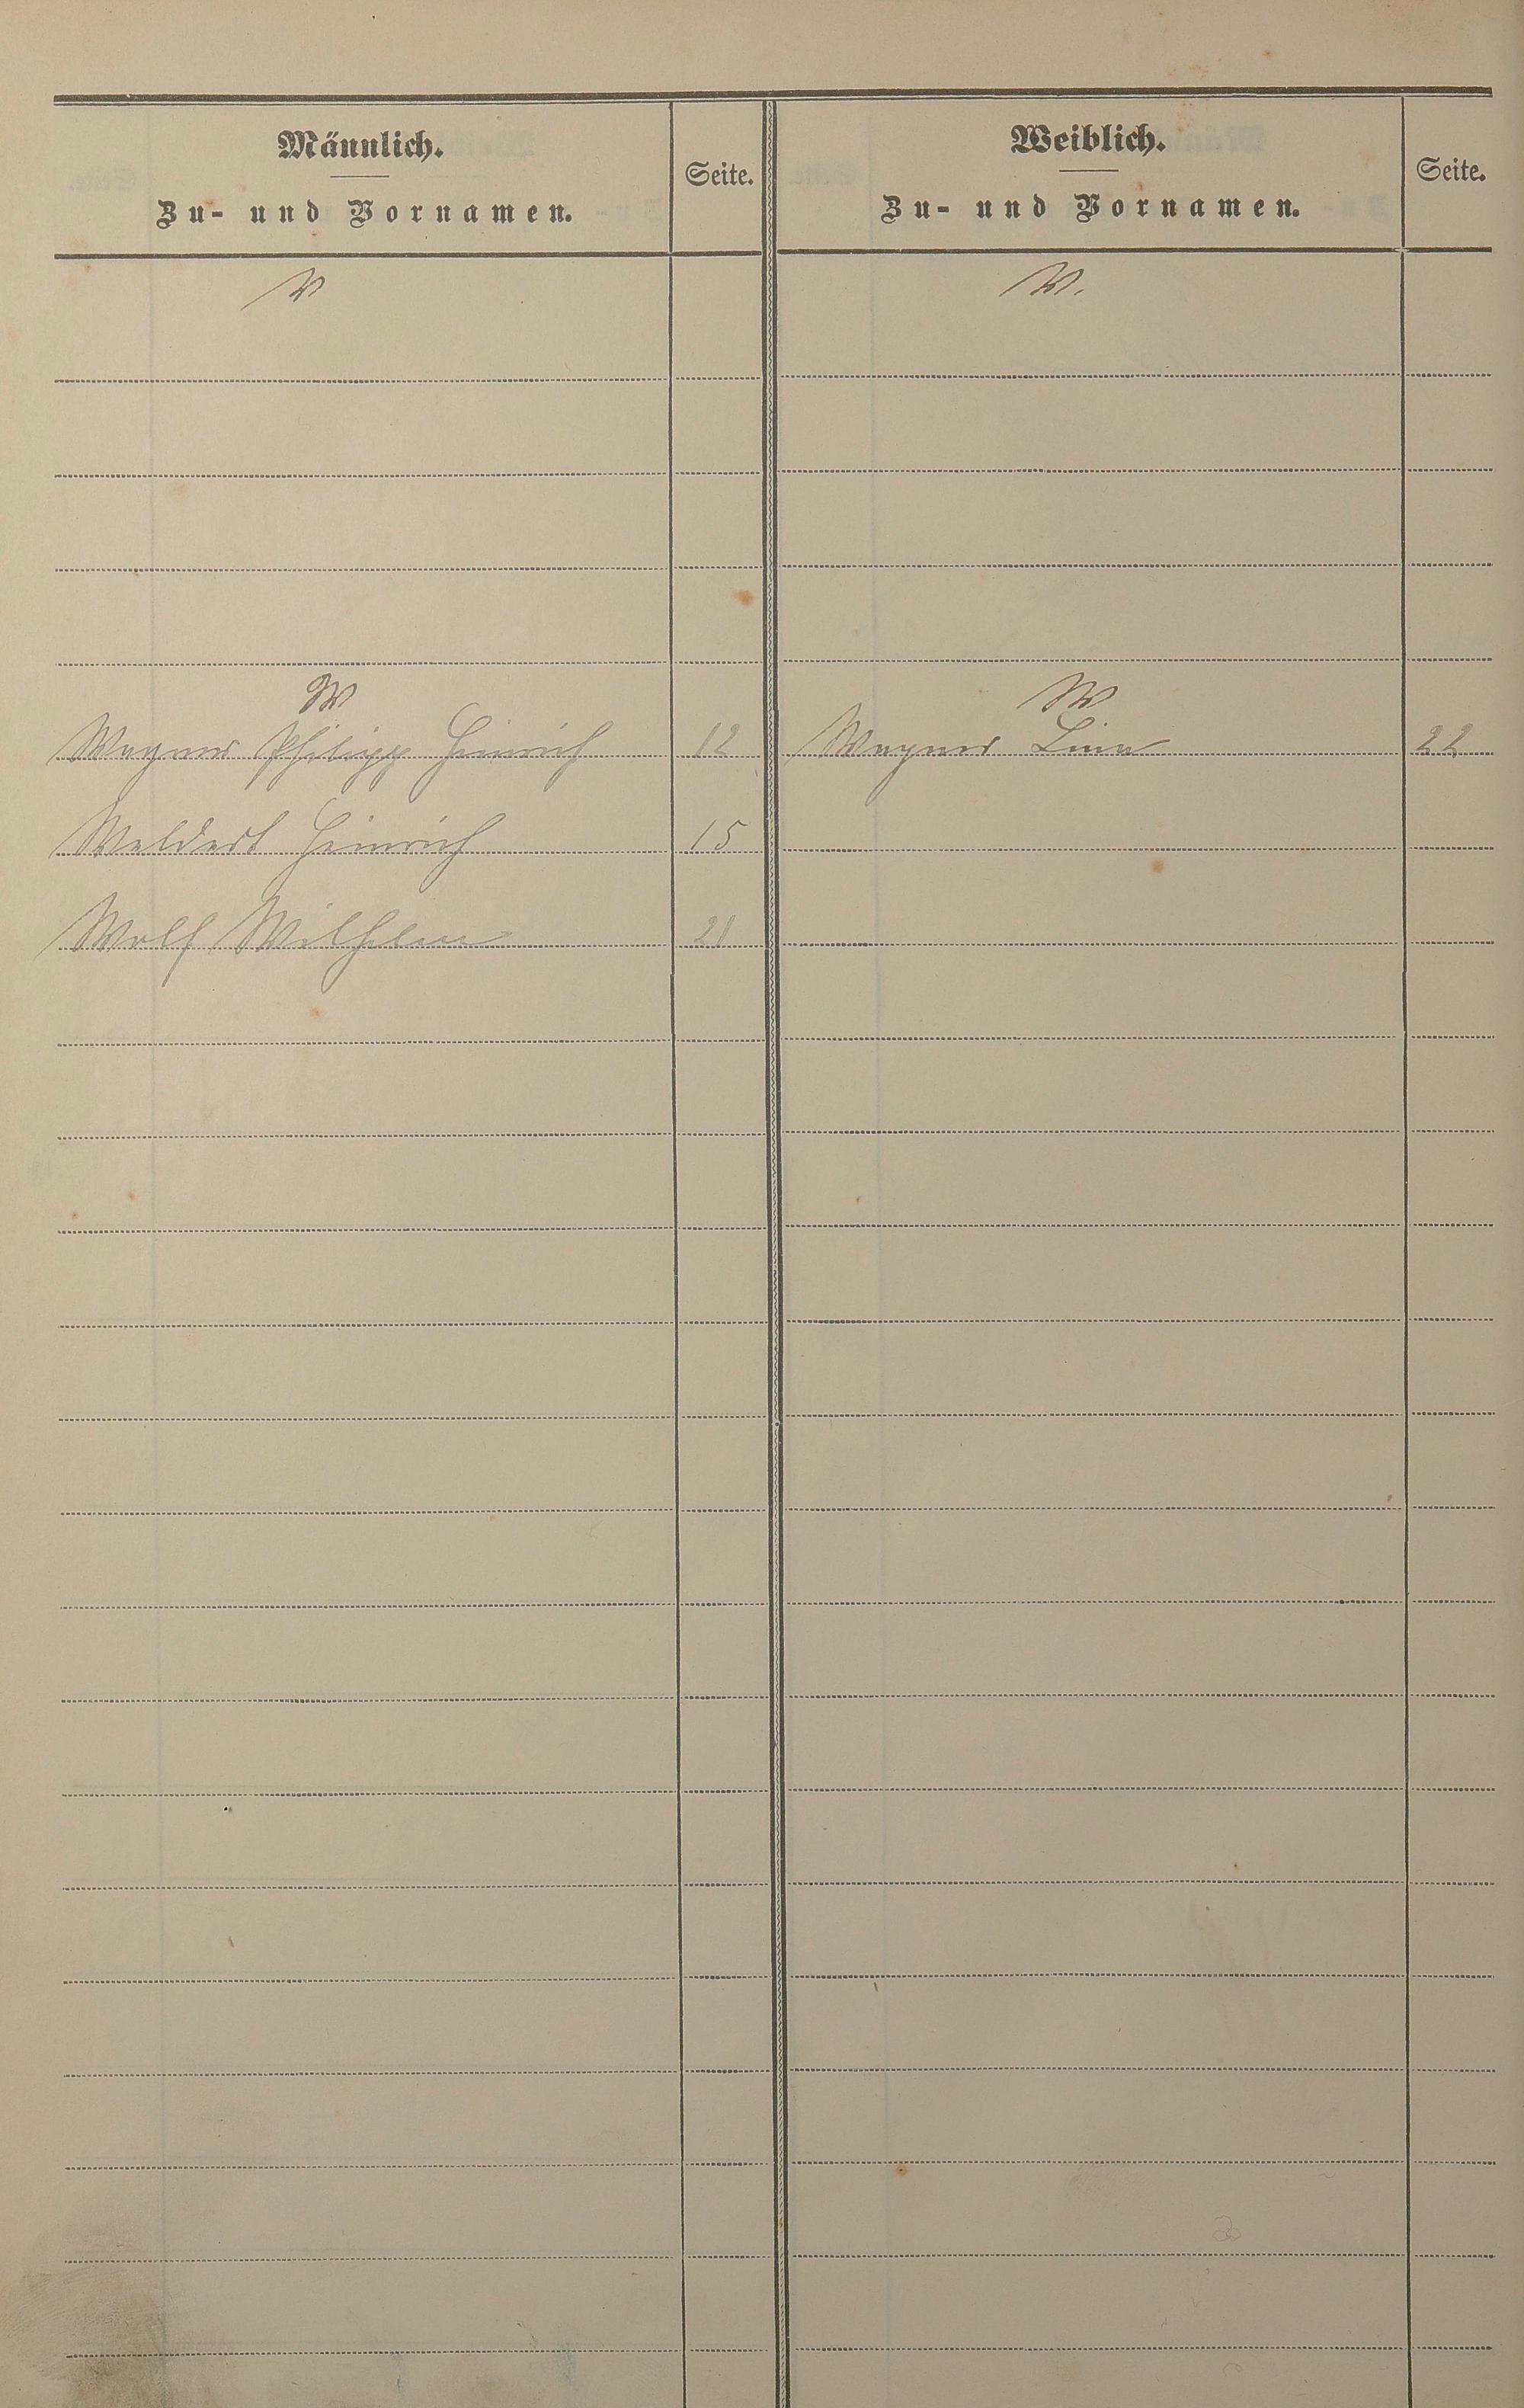 Männlich.
Zu- und Vornamen.
Seite.
Weiblich.
Zu- und Vornamen.
Seite.
W
Wagner Philipp Heinrich 12
Weldert Heinrich 15
Wolf Wilhelm 21
W
Wagner Lina 22